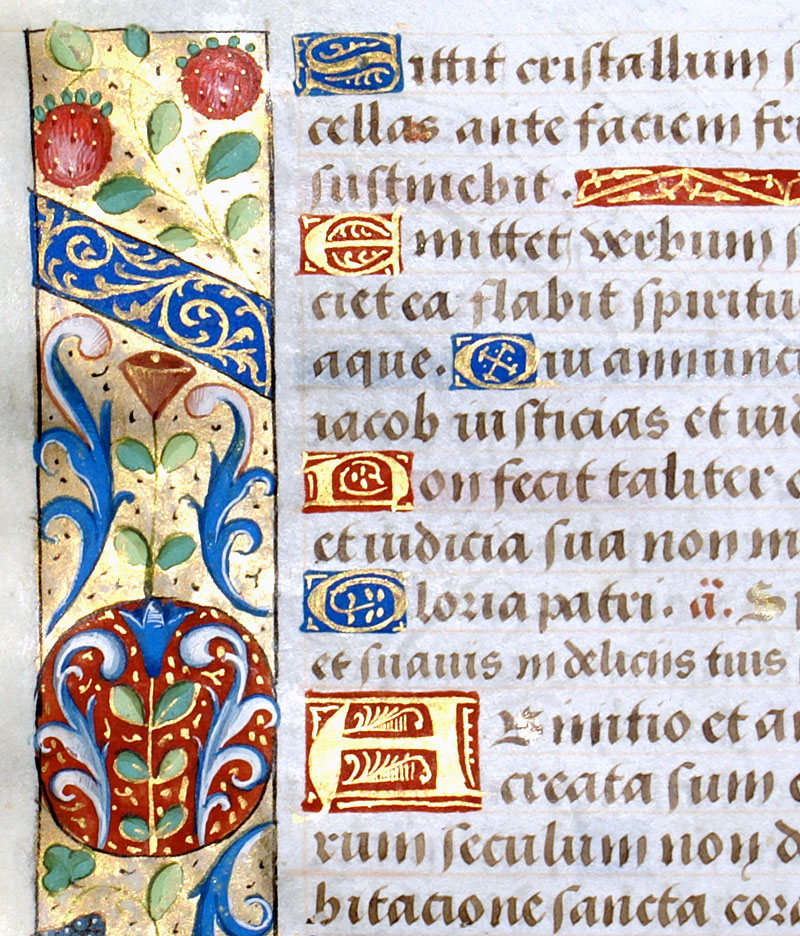 Mittit cristallum s
cellas ante faciem fri
sustinebit.
Emittet verbum s
ciet ea flabit spiritu
aque. Qui annunci
iacob iusticias et iud
Non fecit taliter o
et iudicia sua non m
Gloria patri. a. Sp
et suauis in deliciis tuis
AB initio et an
creata sum e
rum seculum non d
bitacione sancta cora